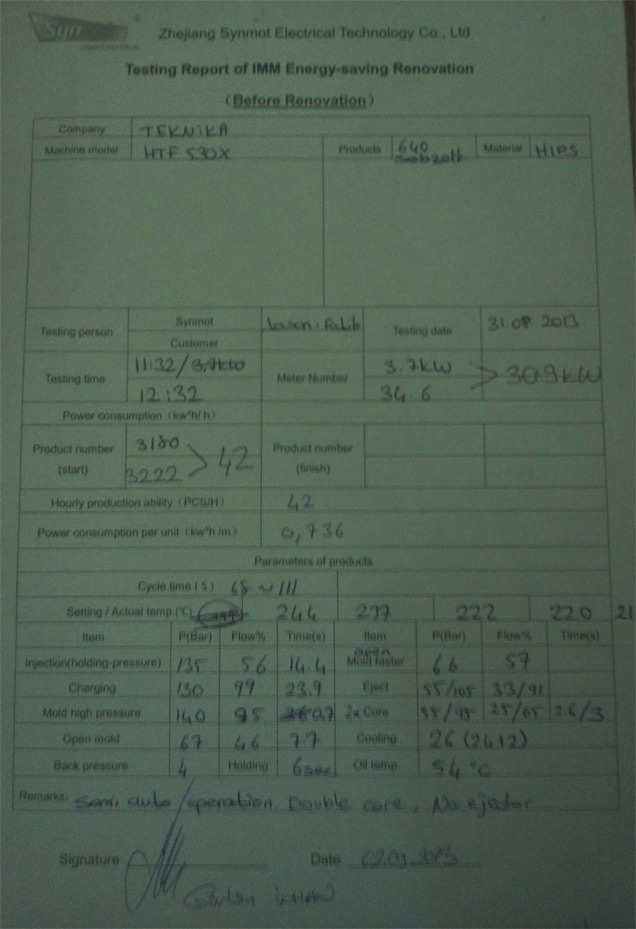 Syn
Zhejiang Synmot Electrical Technology Co., Ltd
Testing Report of IMM Energy-saving Renovation
(Before Renovation)
Company TEKNIKA
Machine model HTF 530X Products 640 Material HIPS
Testing person Synmot Jason: Testing date 31.08 2013
Customer
Testing time 11:32/3,7kw Meter Number 3.7kW > 30.9kW
12:32 34.6
Power consumption (kw*h/ h)
Product number (start) 3180 > 42 Product number (finish)
3222
Hourly production ability (PCS/H) 42
Power consumption per unit (kw*h /m) 0,736
Parameters of products
Cycle time ( S ) 68 ~ 111
Setting / Actual temp.(°C) 244 237 222 220 21
Item P(Bar) Flow% Time(s) Item P(Bar) Flow% Time(s)
Injection(holding-pressure) 135 56 14.4 open Mold faster 66 57
Charging 130 99 23.9 Eject 55/105 33/91
Mold high pressure 140 95 0.7 2x Core 95/95 25/65 2.6/3
Open mold 67 46 7.7 Cooling 26 (24+2)
Back pressure 4 Holding 6sec Oil temp. 54 °C
Remarks: Semi auto operation. Double core, No ejector
Signature Date 02.09.2013